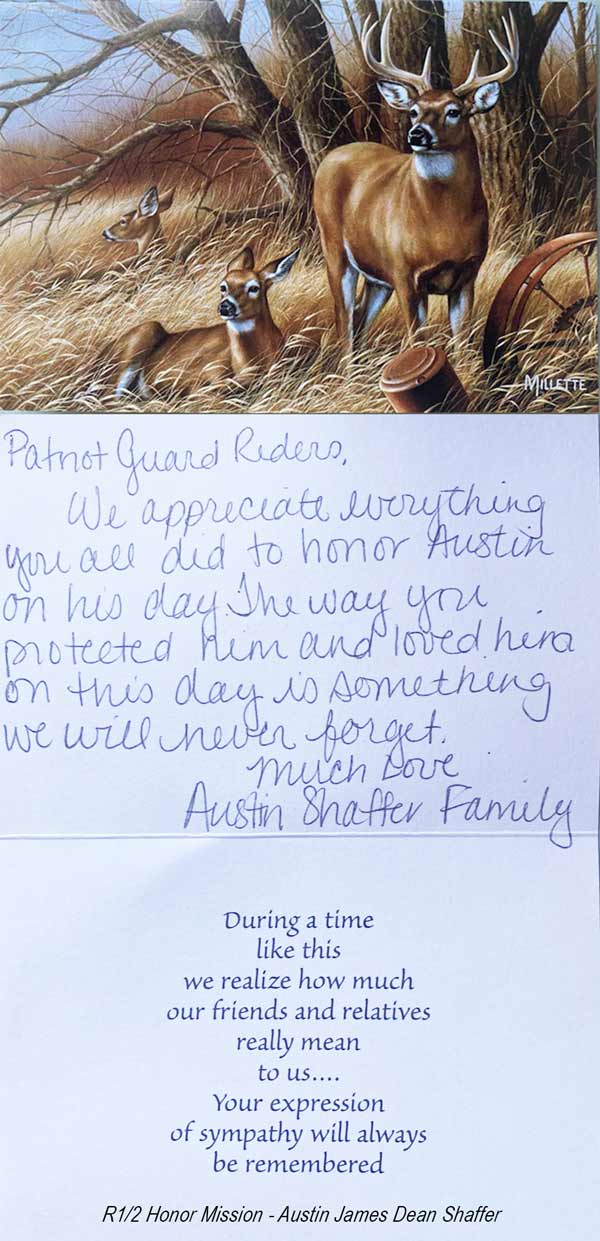 MILLETTE
Patriot Guard Riders,
We appreciate everything
you all did to honor Austin
on his day. The way you
protected him and loved him
on this day is something
we will never forget.
Much Love
Austin Shaffer Family
During a time
like this
we realize how much
our friends and relatives
really mean
to us....
Your expression
of sympathy will always
be remembered
R1/2 Honor Mission - Austin James Dean Shaffer